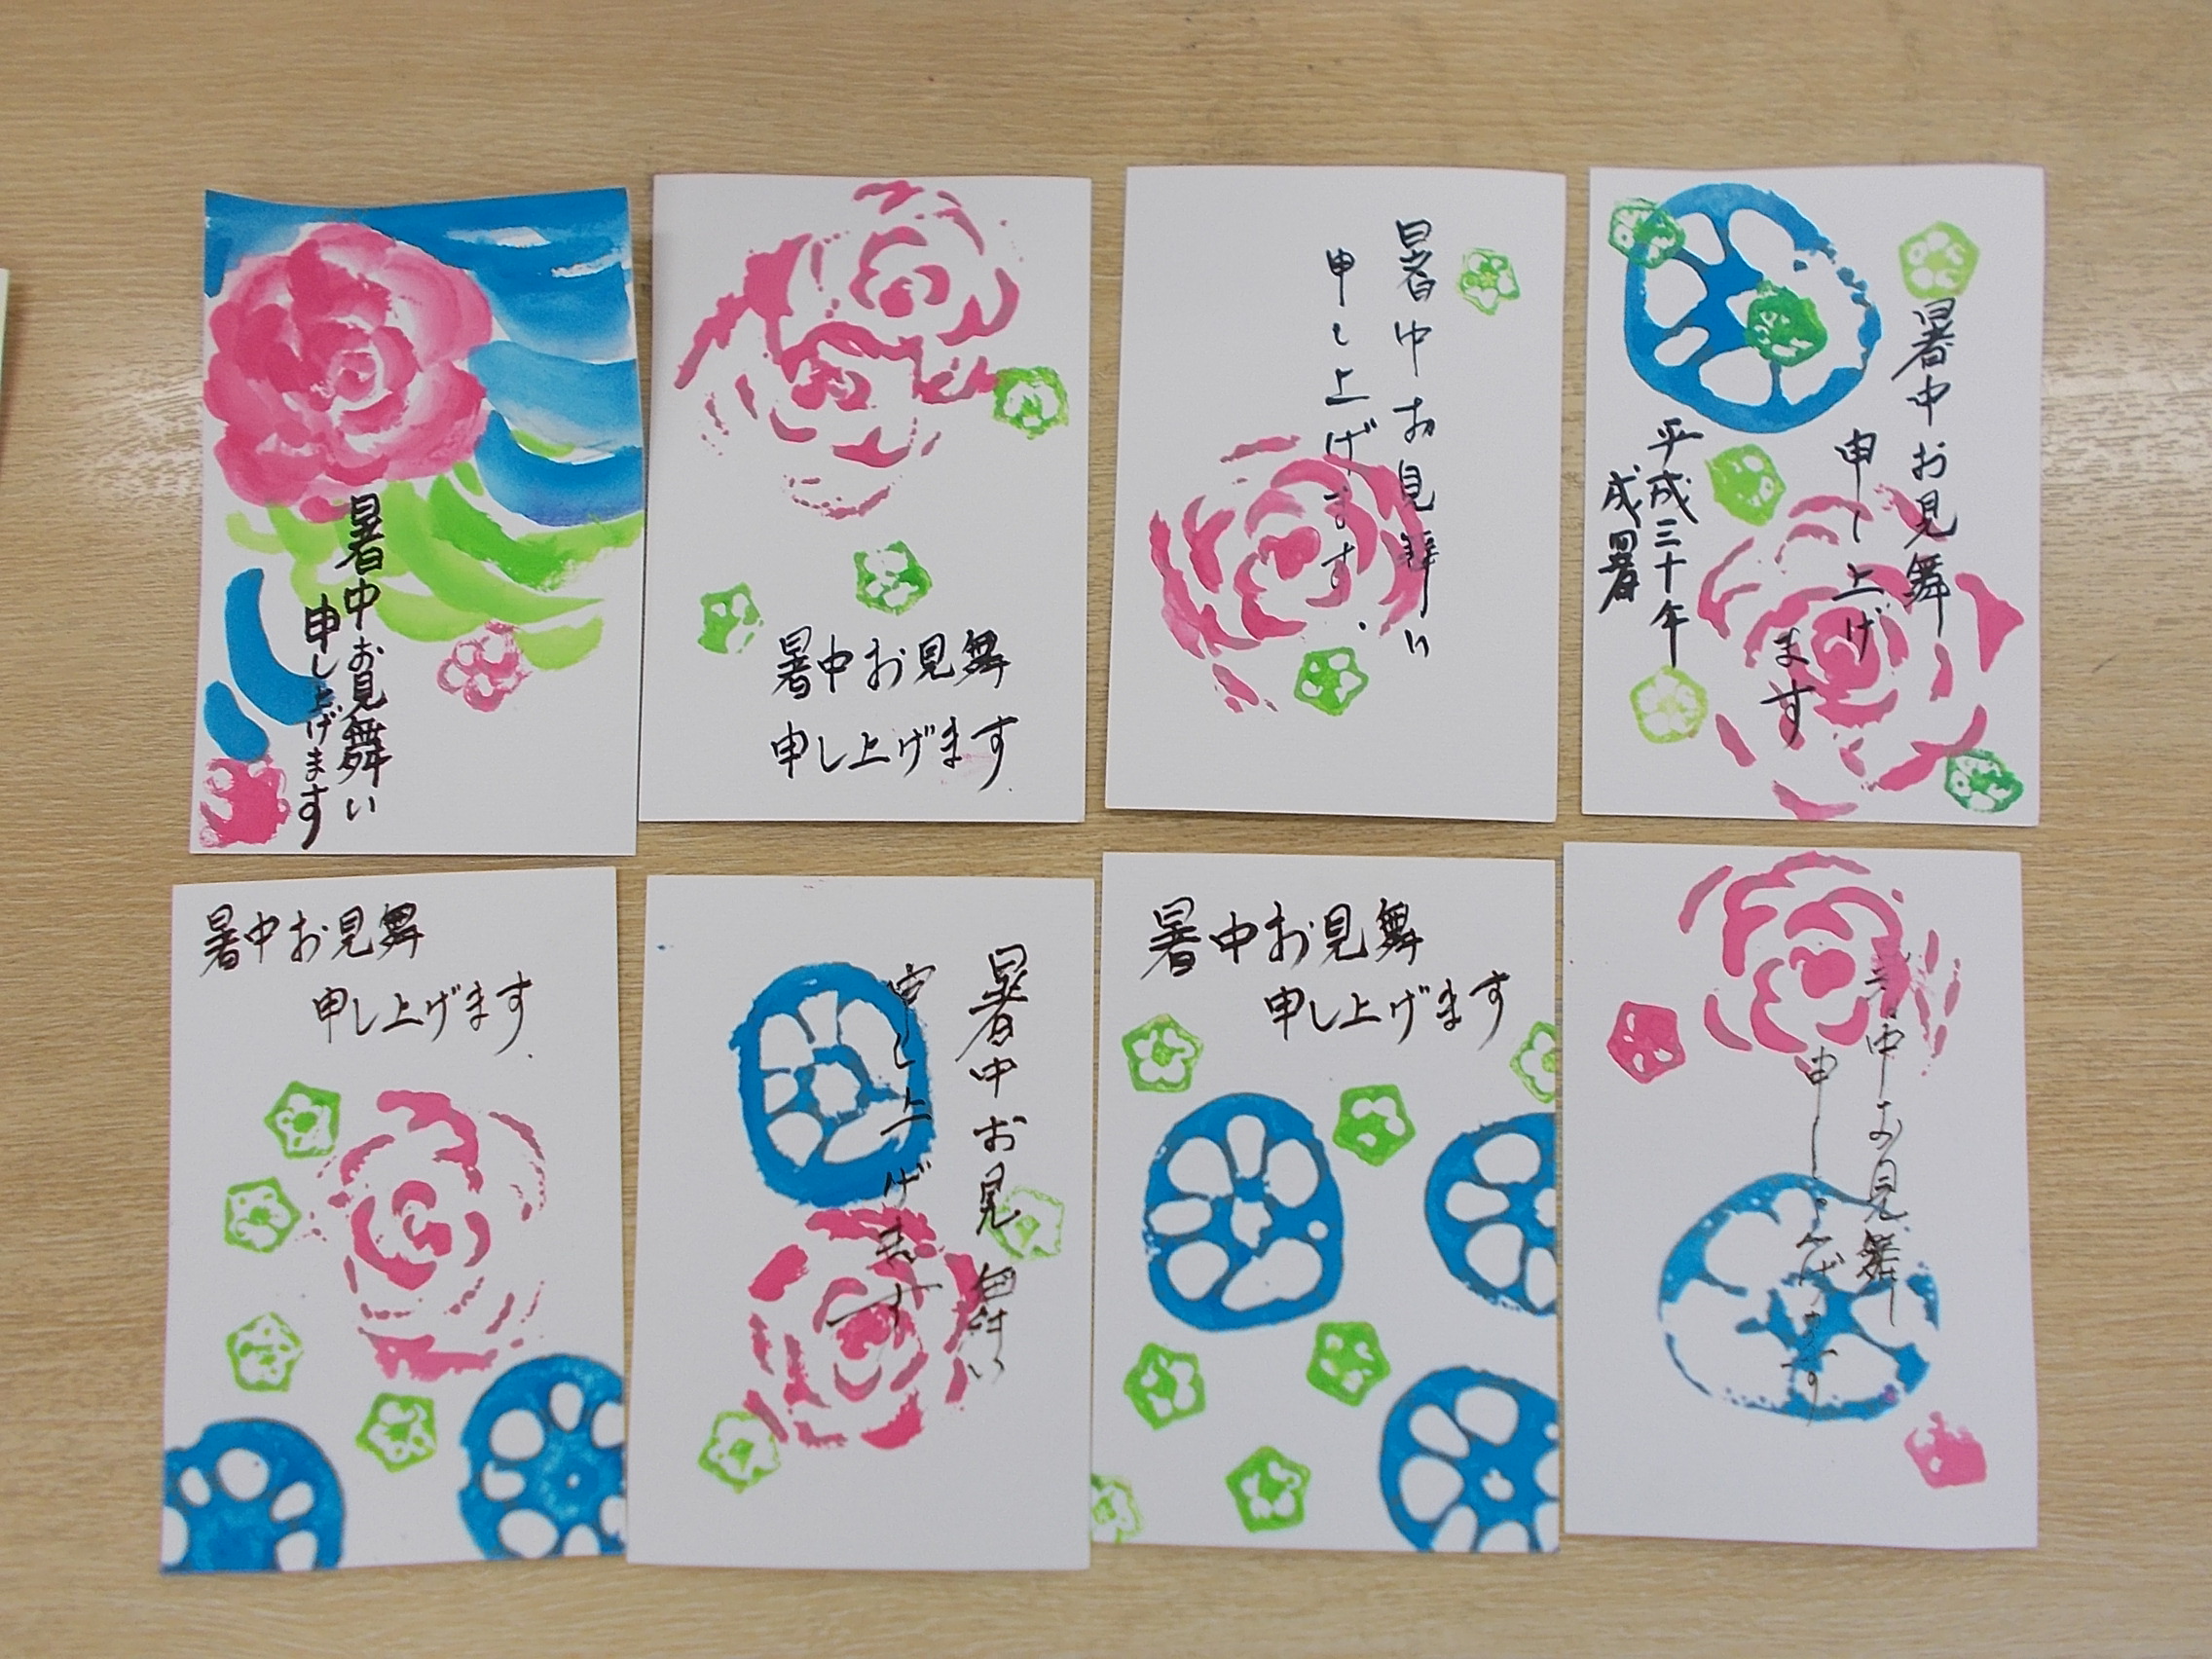 暑中お見舞い
申し上げます
暑中お見舞
申し上げます
暑中お見舞い
申し上げます
暑中お見舞
申し上げ
ます
平成三十年
暑中お見舞
申し上げます
暑中お見舞い
申し上げます
暑中お見舞
申し上げます
中お見舞
申し上げます